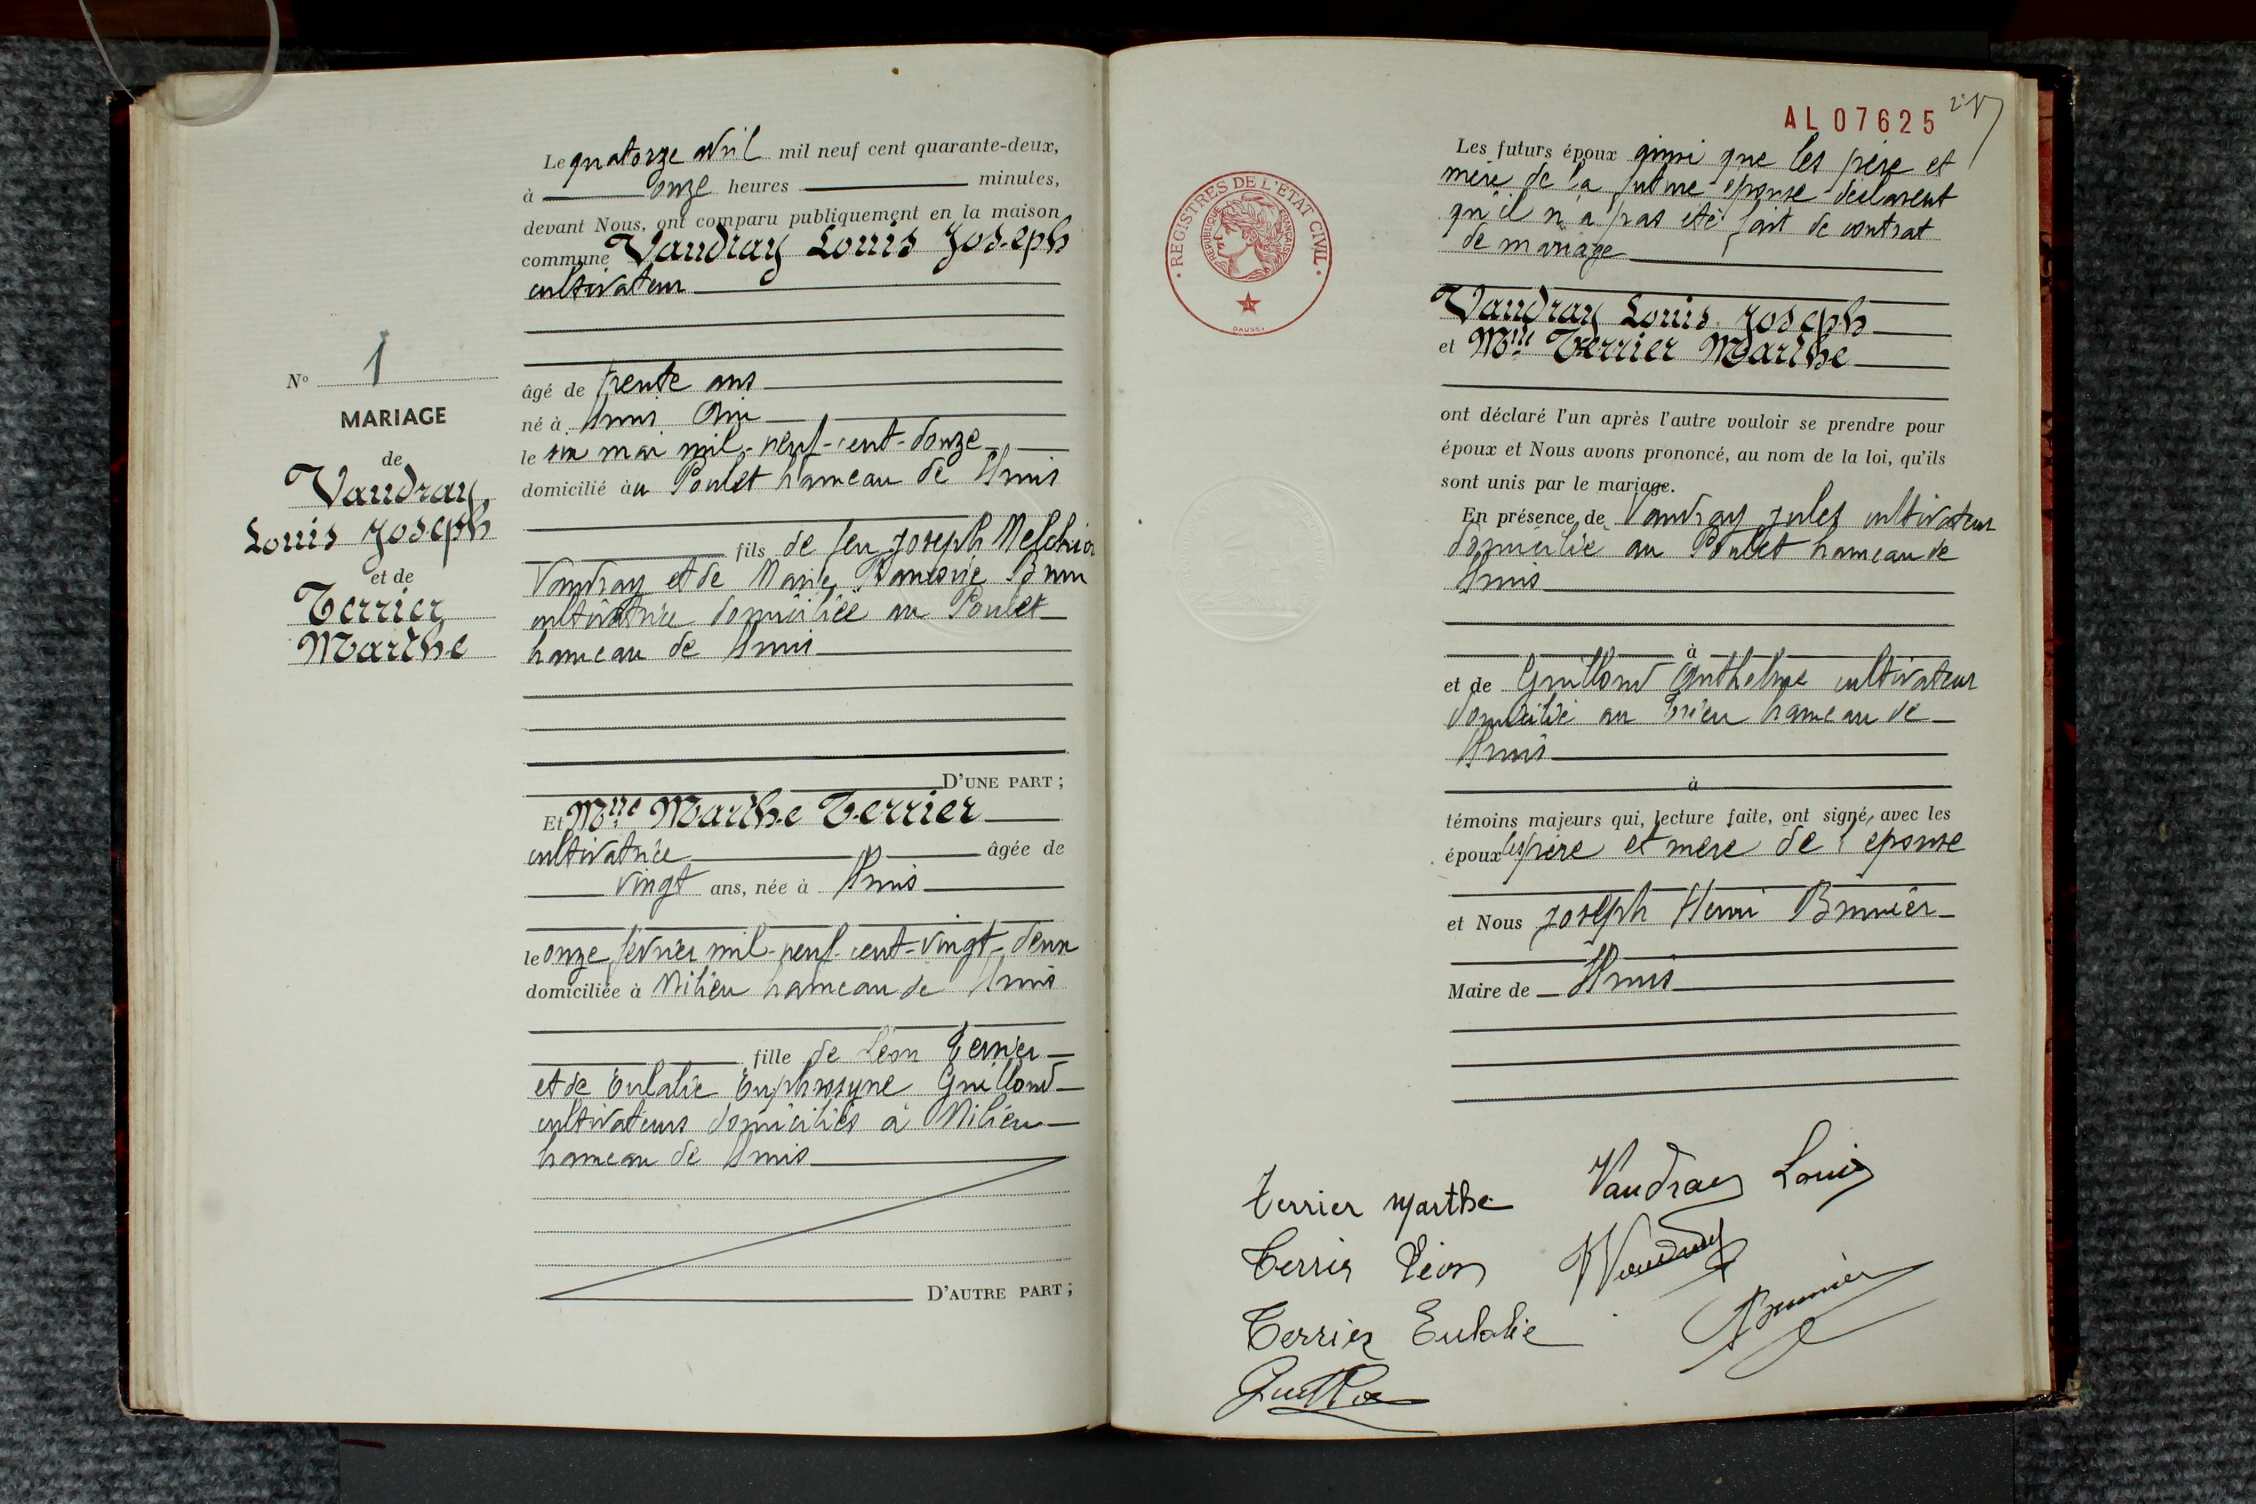 Le quatorze avril mil neuf cent quarante-deux,
à onze heures minutes,
devant Nous, ont comparu publiquement en la maison
commune Vaudray Louis Joseph
cultivateur
N° 1
MARIAGE
de
Vaudray
Louis Joseph
et de
Terrier
Marthe
âgé de trente ans
né à Izieu Ain
le six mai mil-neuf-cent-douze
domicilié au Poulet hameau de
fils de feu Joseph Melchior
Vaudray et de Marie
cultivatrice domiciliée au Poulet
hameau de
D'UNE PART ;
Et Mlle Marthe Terrier
cultivatrice âgée de
vingt ans, née à
le onze février mil-neuf-cent-vingt-deux
domiciliée à Milieu hameau de
fille de Léon Terrier
et de Eulalie Euphrosyne Guilloud
cultivateurs domiciliés à Milieu
hameau de
D'AUTRE PART ;
AL 07625
REGISTRES DE L'ETAT CIVIL
REPUBLIQUE FRANÇAISE
Les futurs époux ainsi que les père et
mère de la future épouse déclarent
qu'il n'a pas été fait de contrat
de mariage
Vaudray Louis Joseph
et Mlle Terrier Marthe
ont déclaré l'un après l'autre vouloir se prendre pour
époux et Nous avons prononcé, au nom de la loi, qu'ils
sont unis par le mariage.
En présence de Vaudray Jules cultivateur
domicilié au Poulet hameau de
à
et de Guilloud Anthelme cultivateur
domicilié au hameau de
à
témoins majeurs qui, lecture faite, ont signé avec les
époux les père et mère de l'épouse
et Nous Joseph Henri Brunier
Maire de
Terrier Marthe
Vaudray Louis
Terrier Léon
Vaudray
Terrier Eulalie
Brunier